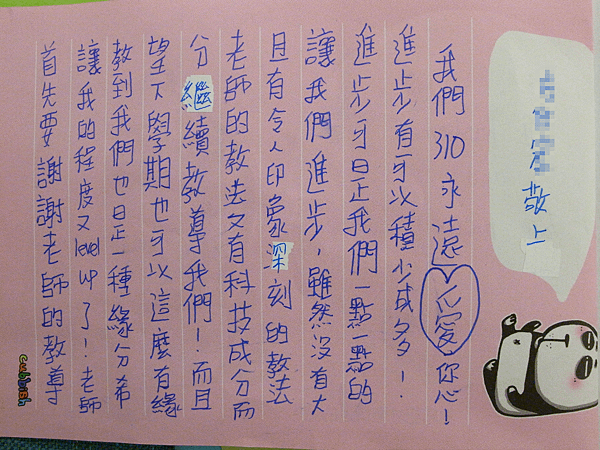 首先要謝謝老師的教導
讓我的程度又level up了!老師
教到我們也是一種緣分希
望下學期也可以這麼有緣
分繼續教導我們!而且
老師的教法又有科技成分而
且有令人印象深刻的教法
讓我們進步,雖然沒有大
進步可是我們一點一點的
進步有可以積少成多!
我們310永遠愛你心!
敬上
cubbish